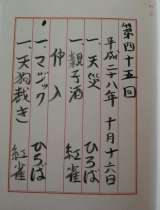 第四十五回
平成二十八年 十月十六日
一、天災 ひろば
一、親子酒 紅雀
仲入
一、マジック ひろば
一、天狗裁き 紅雀